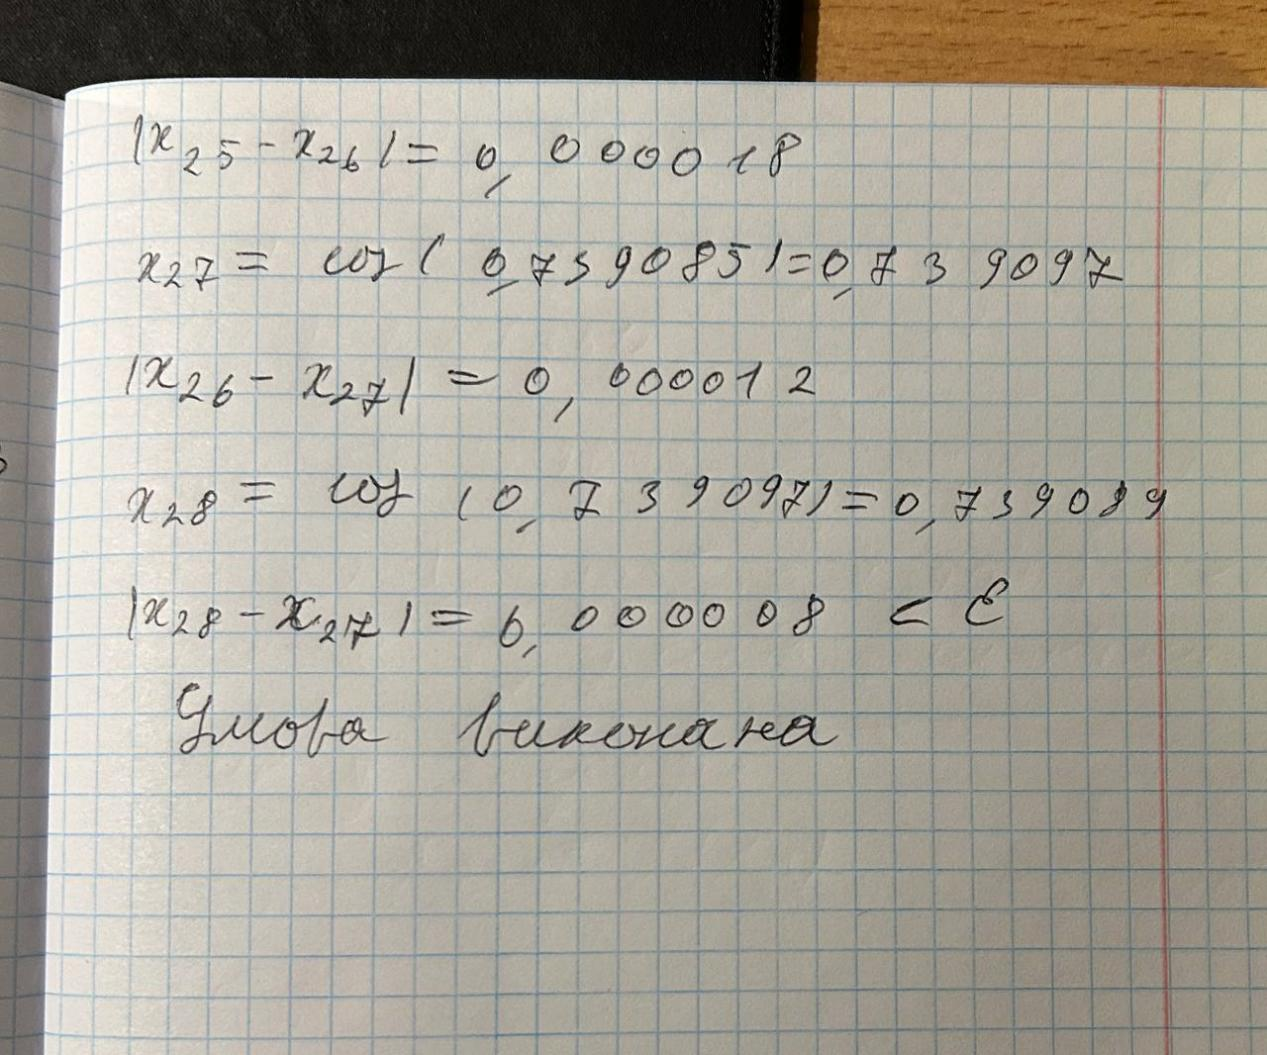 |x₂₅ - x₂₆| = 0,000018
x₂₇ = cos(0,739085) = 0,739097
|x₂₆ - x₂₇| = 0,000012
x₂₈ = cos(0,739097) = 0,739089
|x₂₈ - x₂₇| = 0,000008 < ε
Умова виконана